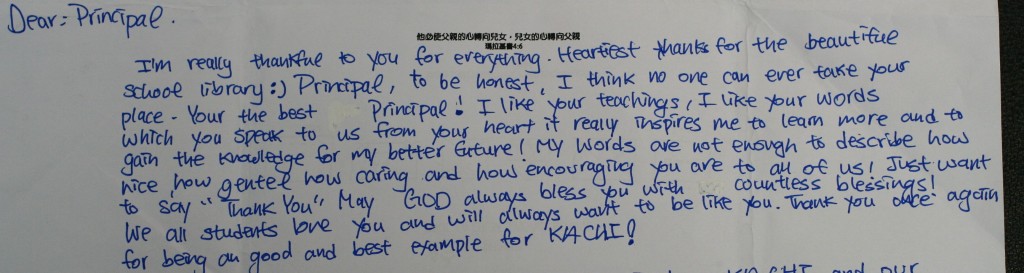 Dear = Principal.
他必使父親的心轉向兒女，兒女的心轉向父親
瑪拉基書4:6
I'm really thankful to you for everything. Heartiest thanks for the beautiful
school library :) Principal, to be honest, I think no one can ever take your
place. Your the best Principal! I like your teachings, I like your words
which you speak to us from your heart it really inspires me to learn more and to
gain the knowledge for my better future! My words are not enough to describe how
nice how gentel how caring and how encouraging you are to all of us! Just want
to say "Thank You" May GOD always bless you with countless blessings!
We all students love you and will always want to be like you. Thank you once again
for being an good and best example for KACHI!
KACHI and our